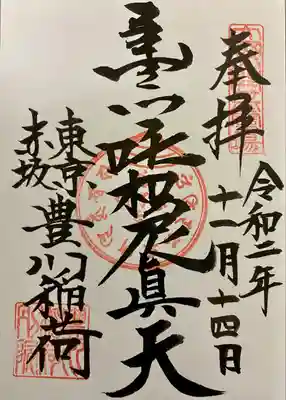 奉拝
令和二年
十一月十四日
豊川吒枳尼眞天
東京
赤坂
豊川稲荷